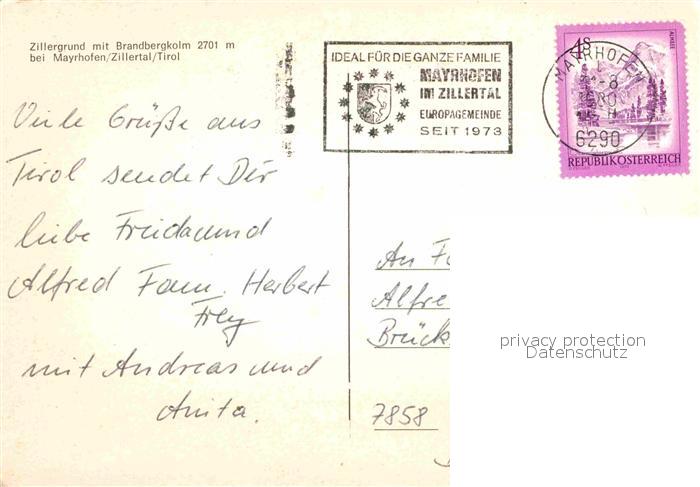 Zillergrund mit Brandbergkolm 2701 m
bei Mayrhofen/Zillertal/Tirol
IDEAL FÜR DIE GANZE FAMILIE
MAYRHOFEN
IM ZILLERTAL
EUROPAGEMEINDE
SEIT 1973
4S
ALMSEE
MAYRHOFEN
6290
REPUBLIK ÖSTERREICH
Viele Grüße aus
Tirol sendet Dir
liebe Frieda und
Alfred Fam. Herbert
Frey
mit Andreas und
Anita.
An
Alfre
Brück
7858
privacy protection
Datenschutz